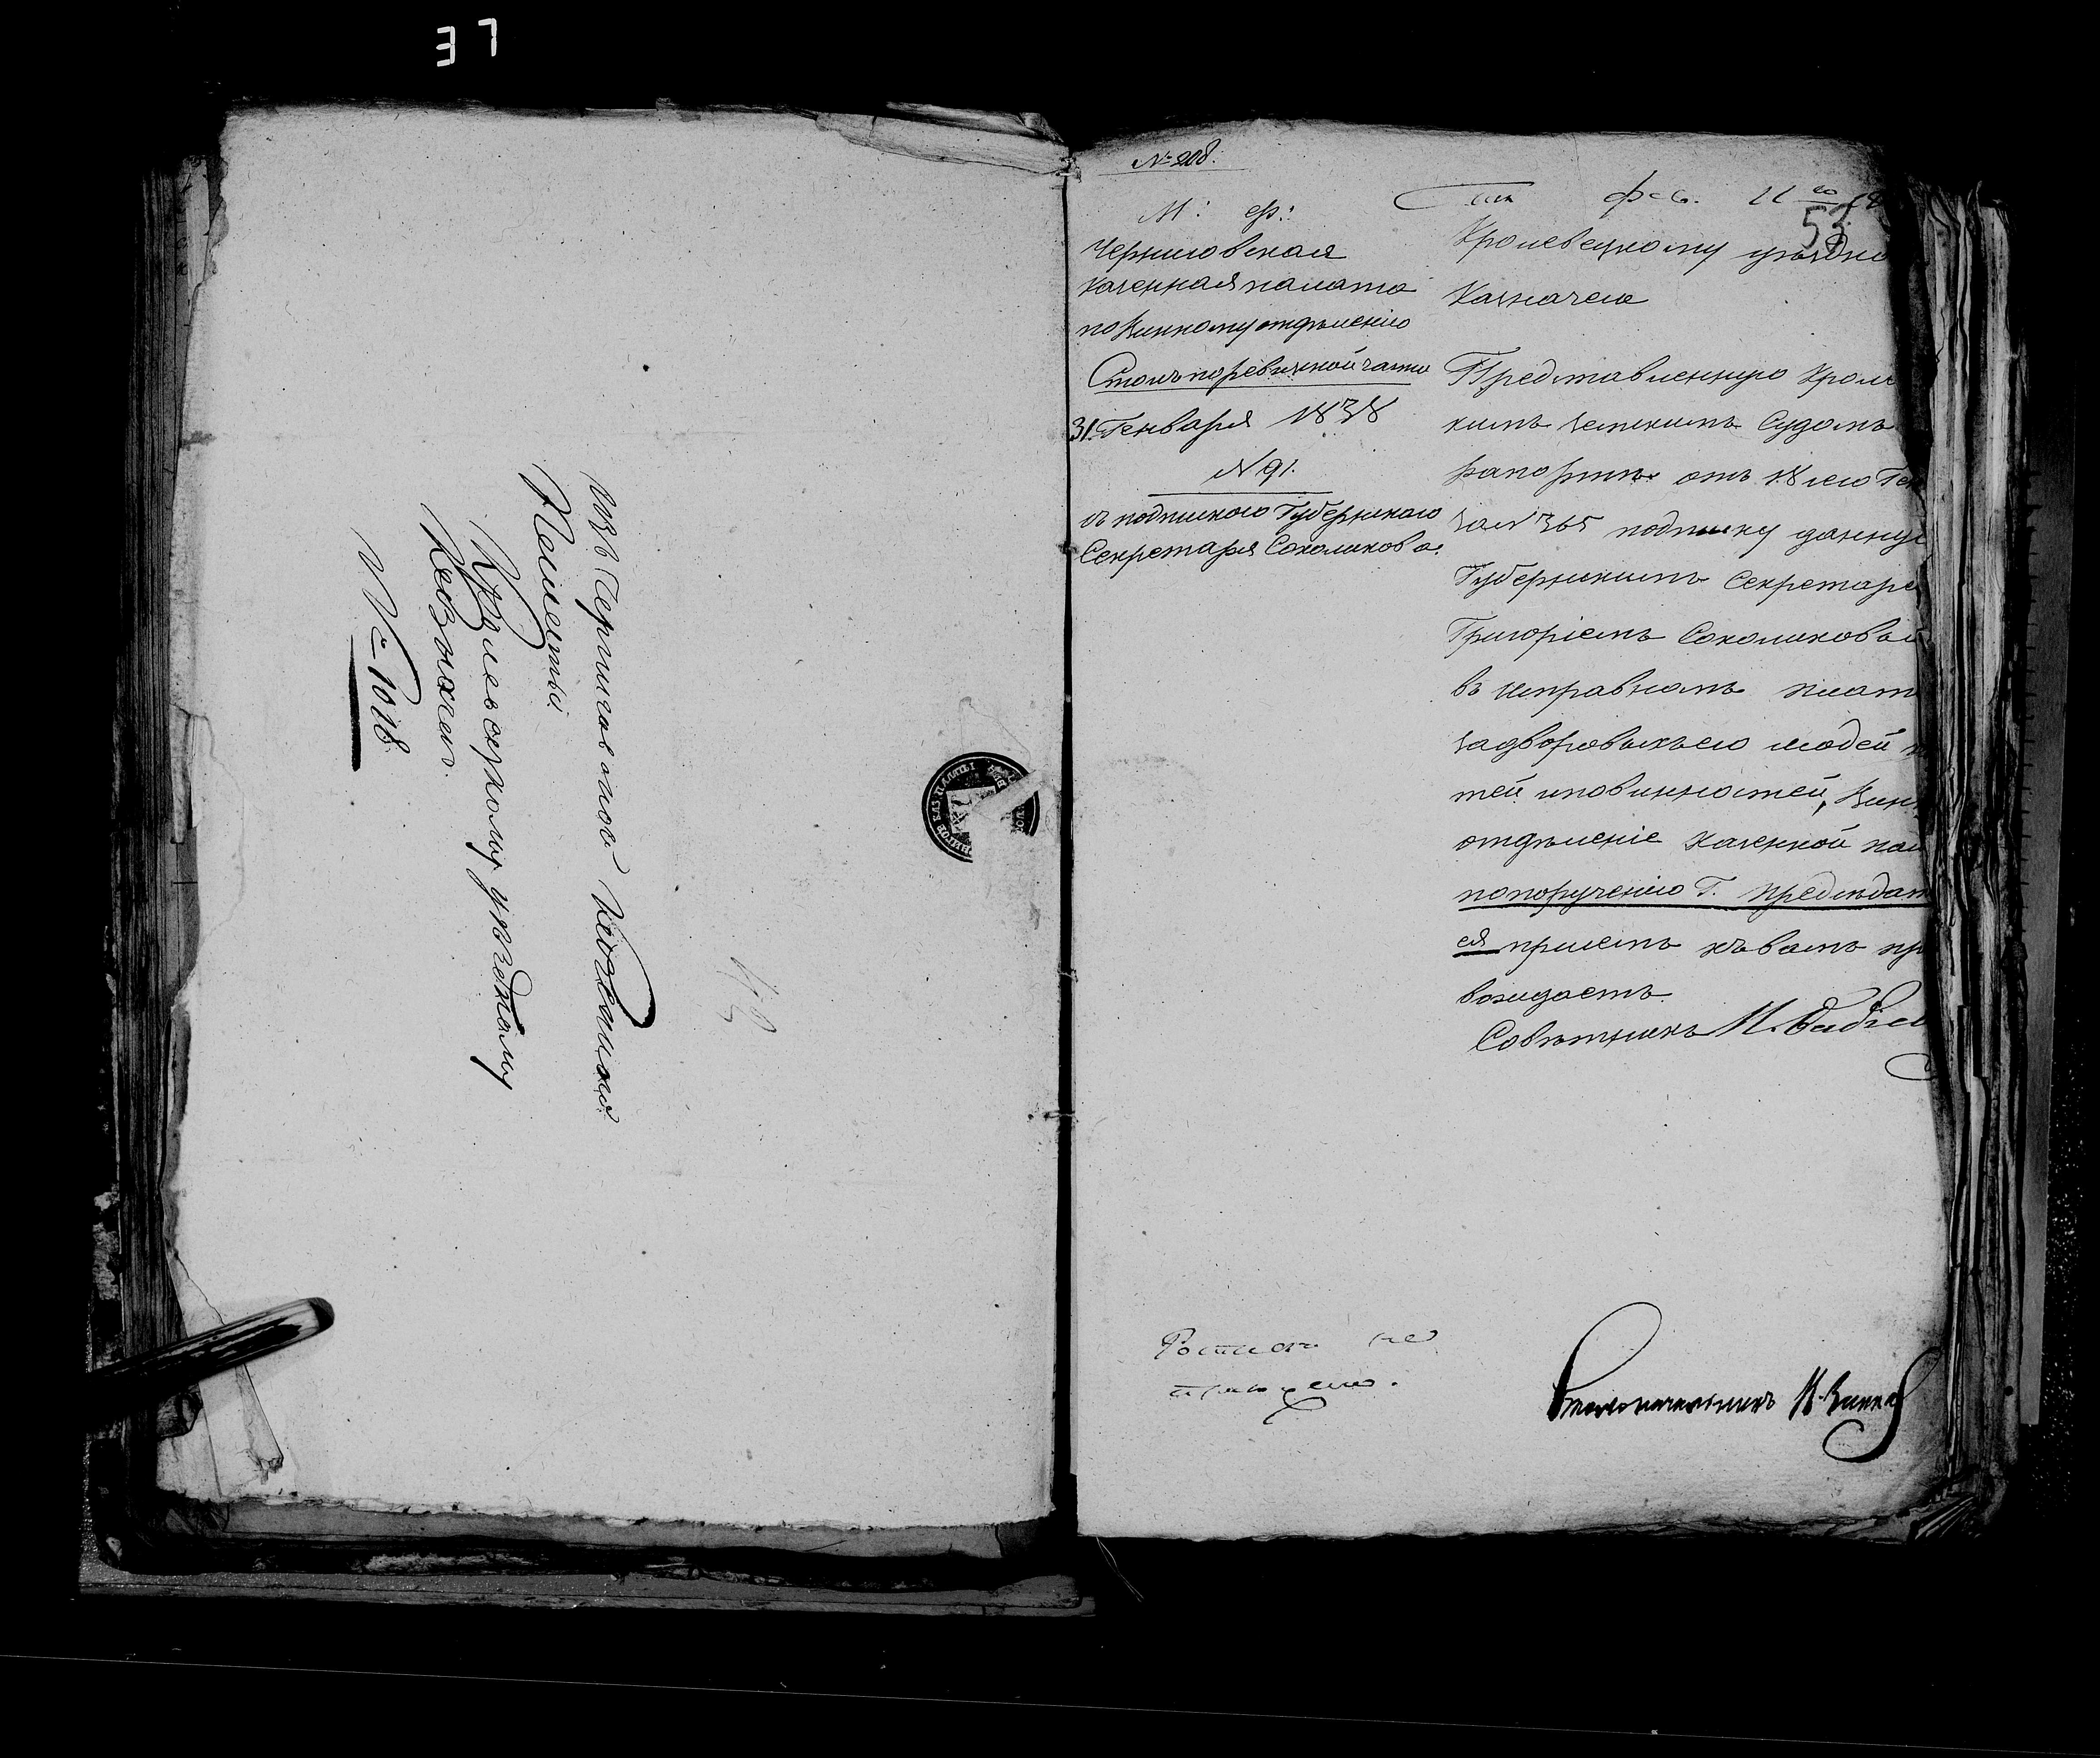 37
Изъ Черниговской Казенной
Палаты
Кролевецкому уездному
Казначею
№ 1018
№ 208.
М: Ф:
Черниговская
казенная палата
по Винному отдѣленію
Столъ по ревизкой части
31. Генваря 1838
№ 91.
съ подпискою Губернскаго
Секретаря Соколикова.
Фев. 11го 18
53
Кролевецкому уѣздно
Казначею
Представленную Крол
кимъ земскимъ Судомъ
рапортѣ отъ 18 сего Ген
за № 365 подписку данную
Губернскимъ Секретаре
Григоріемъ Соколиковы
въ исправномъ плат
за дворовыхъ его людей
тей и повинностей, Вин
отдѣленіе казенной пал
по порученію Г. Предсѣдат
ея при семъ къ вамъ пр
вождаетъ
Совѣтникъ М.
Столоначальникъ